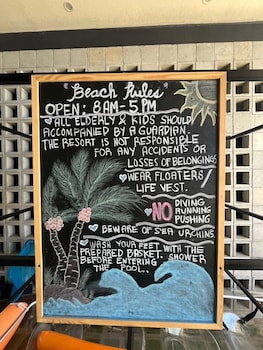 "Beach Rules"
OPEN: 8AM-5PM
ALL ELDERLY & KIDS SHOULD
ACCOMPANIED BY A GUARDIAN.
THE RESORT IS NOT RESPONSIBLE
FOR ANY ACCIDENTS OR
LOSSES OF BELONGINGS
WEAR FLOATERS/
LIFE VEST.
NO DIVING
RUNNING
PUSHING
BEWARE OF SEA URCHINS.
WASH YOUR FEET WITH THE
PREPARED BASKET. SHOWER
BEFORE ENTERING
THE POOL.